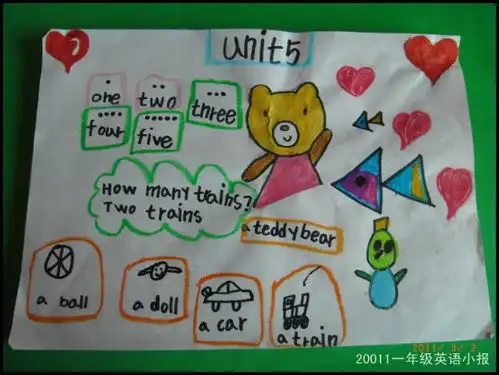 unit5
one
two
three
four
five
How many trains?
Two trains
a teddy bear
a ball
a doll
a car
a train
20011一年级英语小报